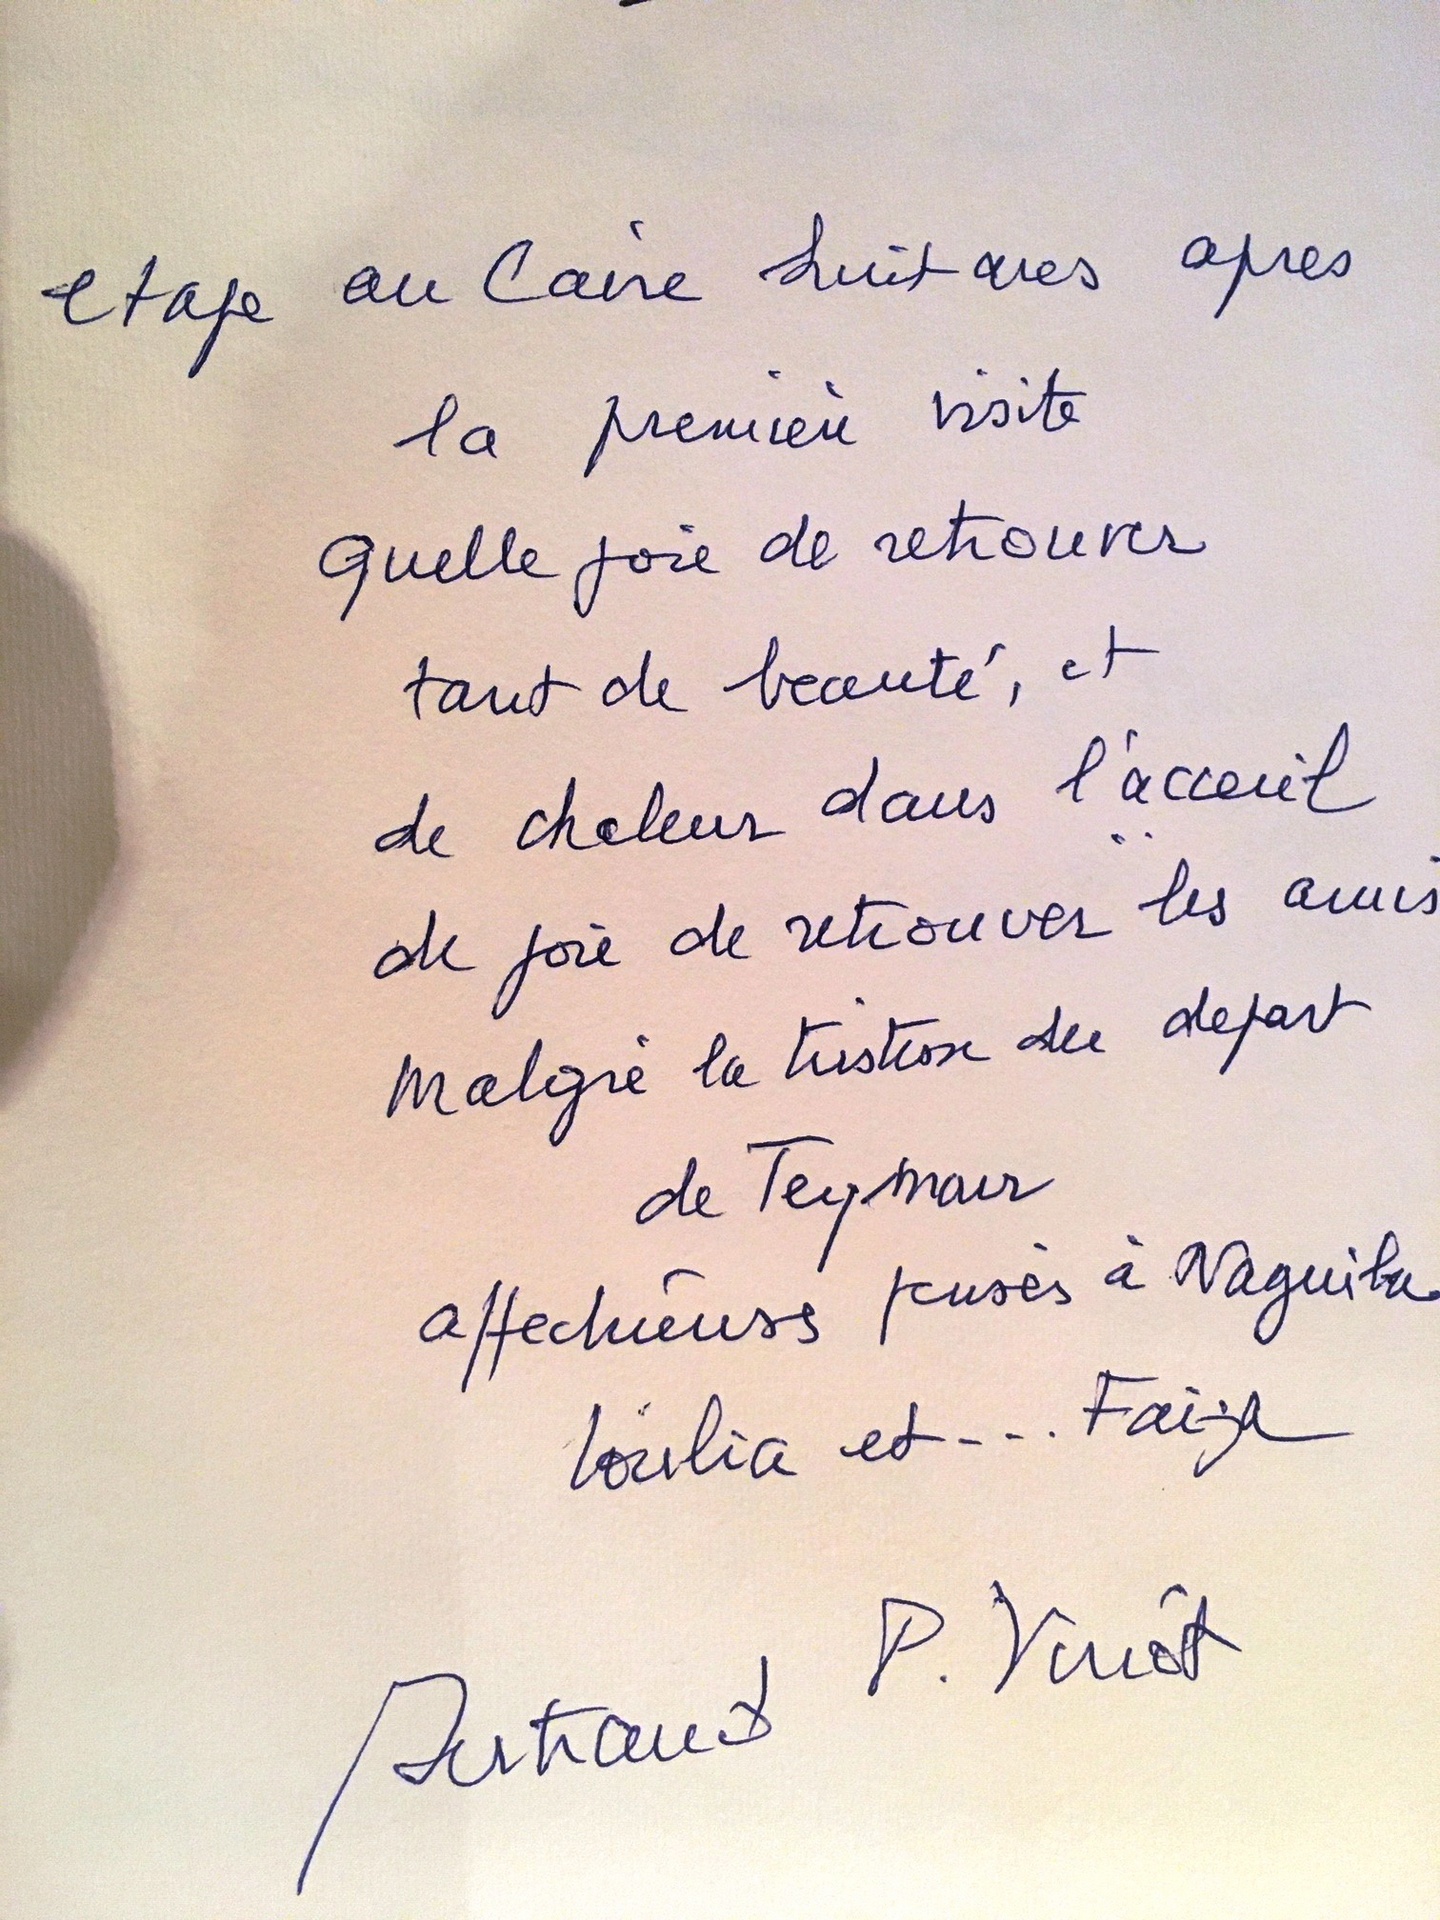 etape au Caire huit ans apres
la première visite
Quelle joie de retrouver
tant de beauté, et
de chaleur dans l'acceuil
de joie de retrouver les amis
Malgré la tristesse du depart
de Teymour
affectueuses pensées à Naguiba
Loulia et --- . Faiza
P. Viriot
Bertrand